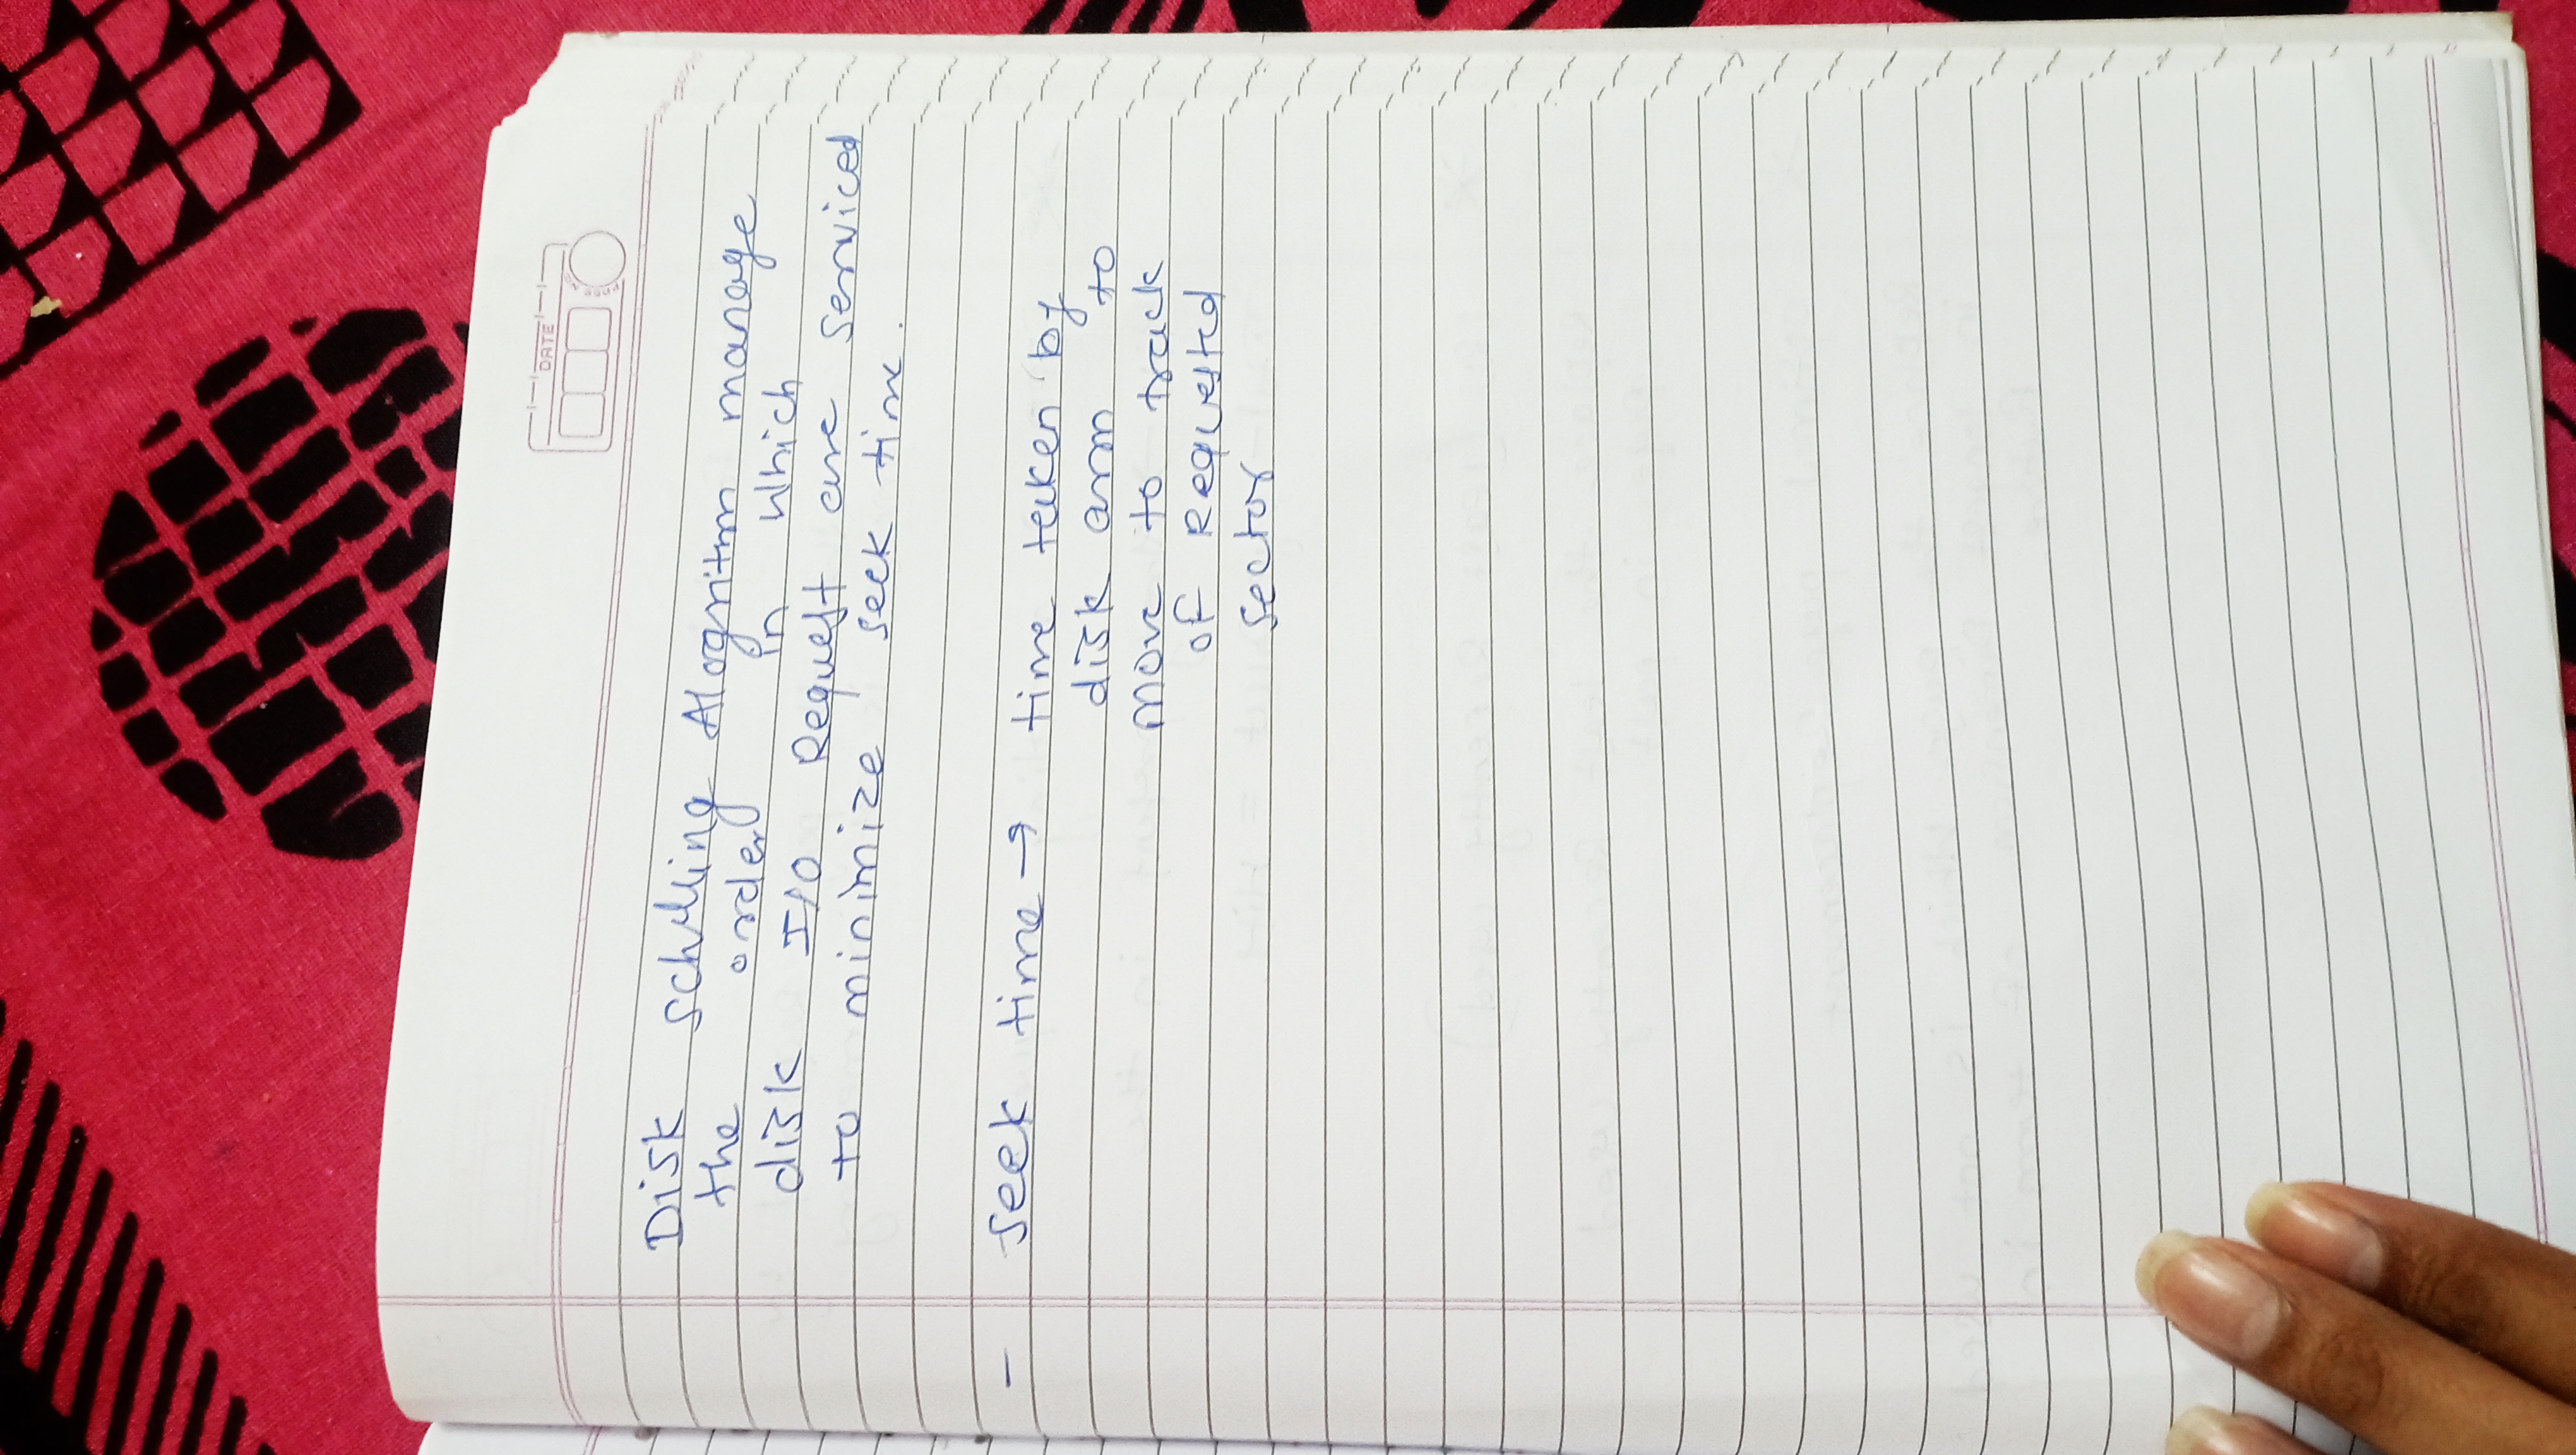 DATE
Disk schdling Alogritm manage
the order in which
disk I/O Request are serviced
to minimize seek time.
- seek time → time taken by
disk arm to
move to track
of Requested
sector